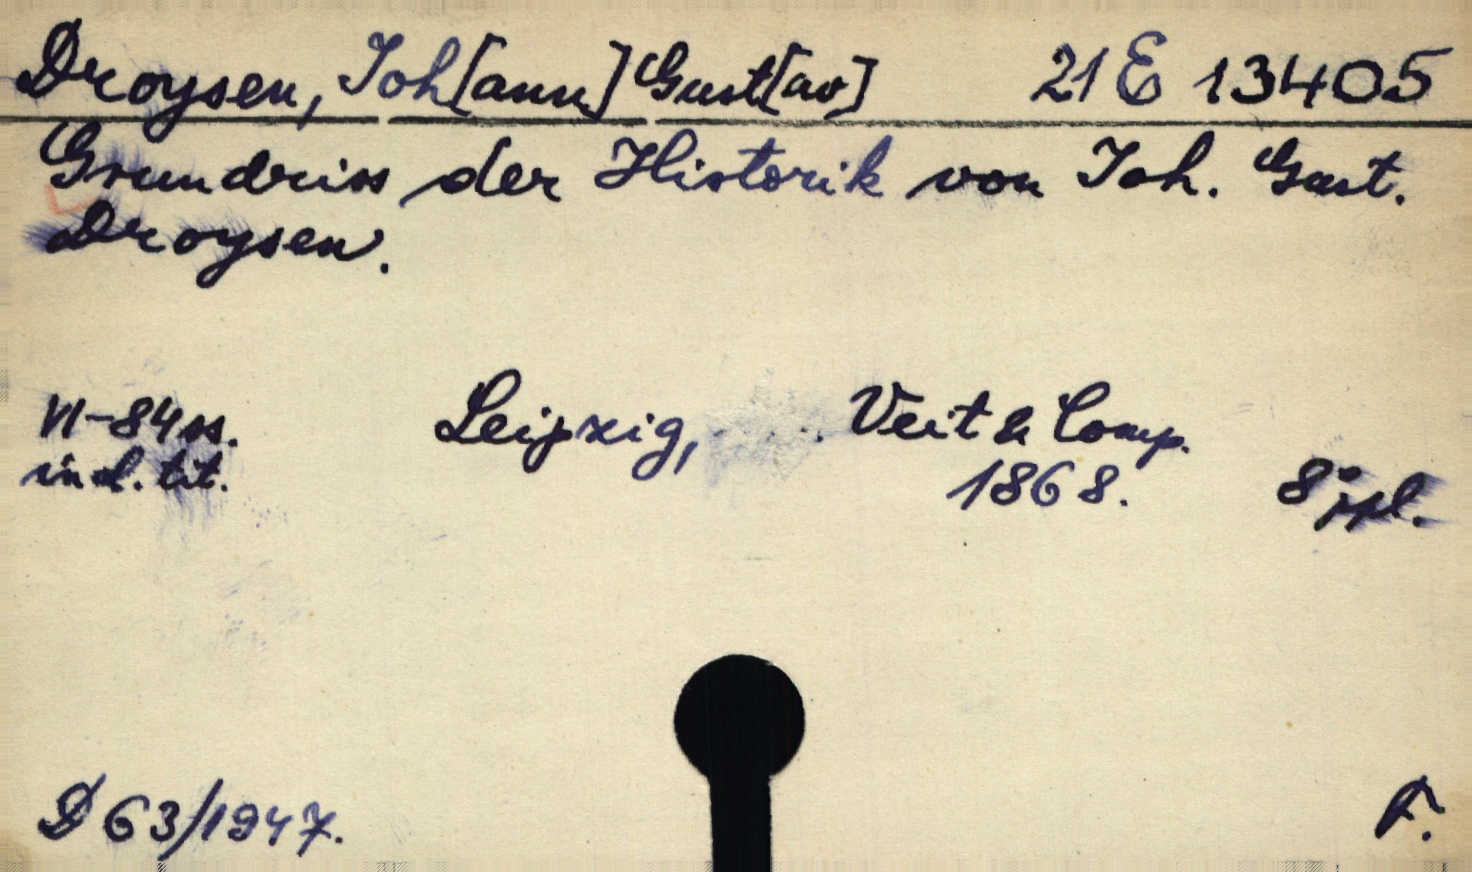 Droysen, Joh[ann] Gust[av] 21 E 13405
Grundriss der Historik von Joh. Gust.
Droysen.
VI-84 ss. Leipzig, Veit & Comp.
incl. tit. 1868. 8° ppl.
D 63/1947. F.